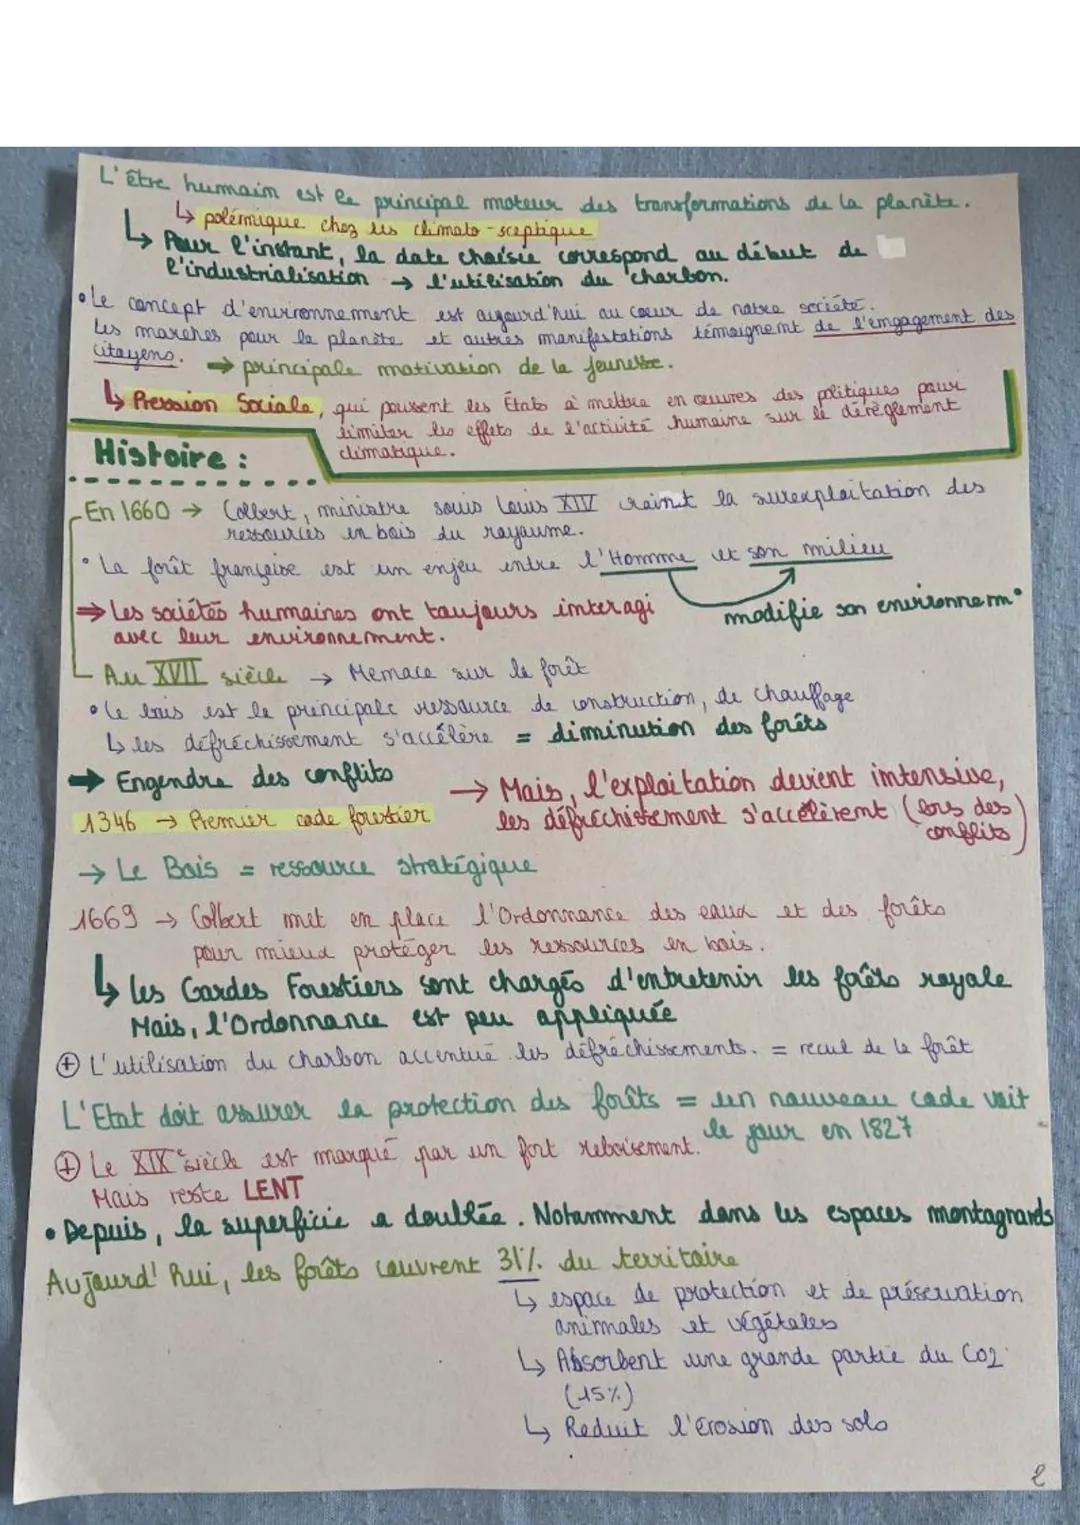 L'être humain est le principal moteur des transformations de la planète.
↳ polémique chez les climato-sceptique
↳ Pour l'instant, la date choisie correspond au début de
l'industrialisation → l'utilisation du charbon.
• Le concept d'environnement est aujourd'hui au coeur de notre société.
Les marches pour la planète et autres manifestations témoignent de l'engagement des
citoyens. ⇒ principale motivation de la jeunesse.
↳ Pression Sociale, qui poussent les États à mettre en œuvres des politiques pour
limiter les effets de l'activité humaine sur le dérèglement
climatique.
Histoire :
En 1660 → Colbert, ministre sous Louis XIV craint la surexploitation des
ressources en bois du royaume.
• La forêt française est un enjeu entre l'Homme et son milieu
modifie son environnem°
⇒ Les sociétés humaines ont toujours interagi
avec leur environnement.
Au XVII siècle → Menace sur la forêt
• Le bois est le principale ressource de construction, de chauffage
↳ les défréchissement s'accélère = diminution des forêts
→ Engendre des conflits
1346 → Premier code forestier
→ Mais, l'exploitation devient intensive,
les défréchissement s'accélèrent (lors des
conflits)
→ Le Bois = ressource stratégique
1669 → Colbert met en place l'Ordonnance des eaux et des forêts
pour mieux protéger les ressources en bois.
↳ les Gardes Forestiers sont chargés d'entretenir les forêts royale
Mais, l'Ordonnance est peu appliquée
⊕ L'utilisation du charbon accentue les défréchissements. = recul de la forêt
L'Etat doit assurer la protection des forêts = un nouveau code voit
le jour en 1827
⊕ Le XIXe siècle est marqué par un fort reboisement.
Mais reste LENT
• Depuis, la superficie a doublée. Notamment dans les espaces montagnards
Aujourd'hui, les forêts couvrent 31% du territoire
↳ espace de protection et de préservation
animales et végétales
↳ Absorbent une grande partie du CO2
(15%)
↳ Reduit l'érosion des sols
2